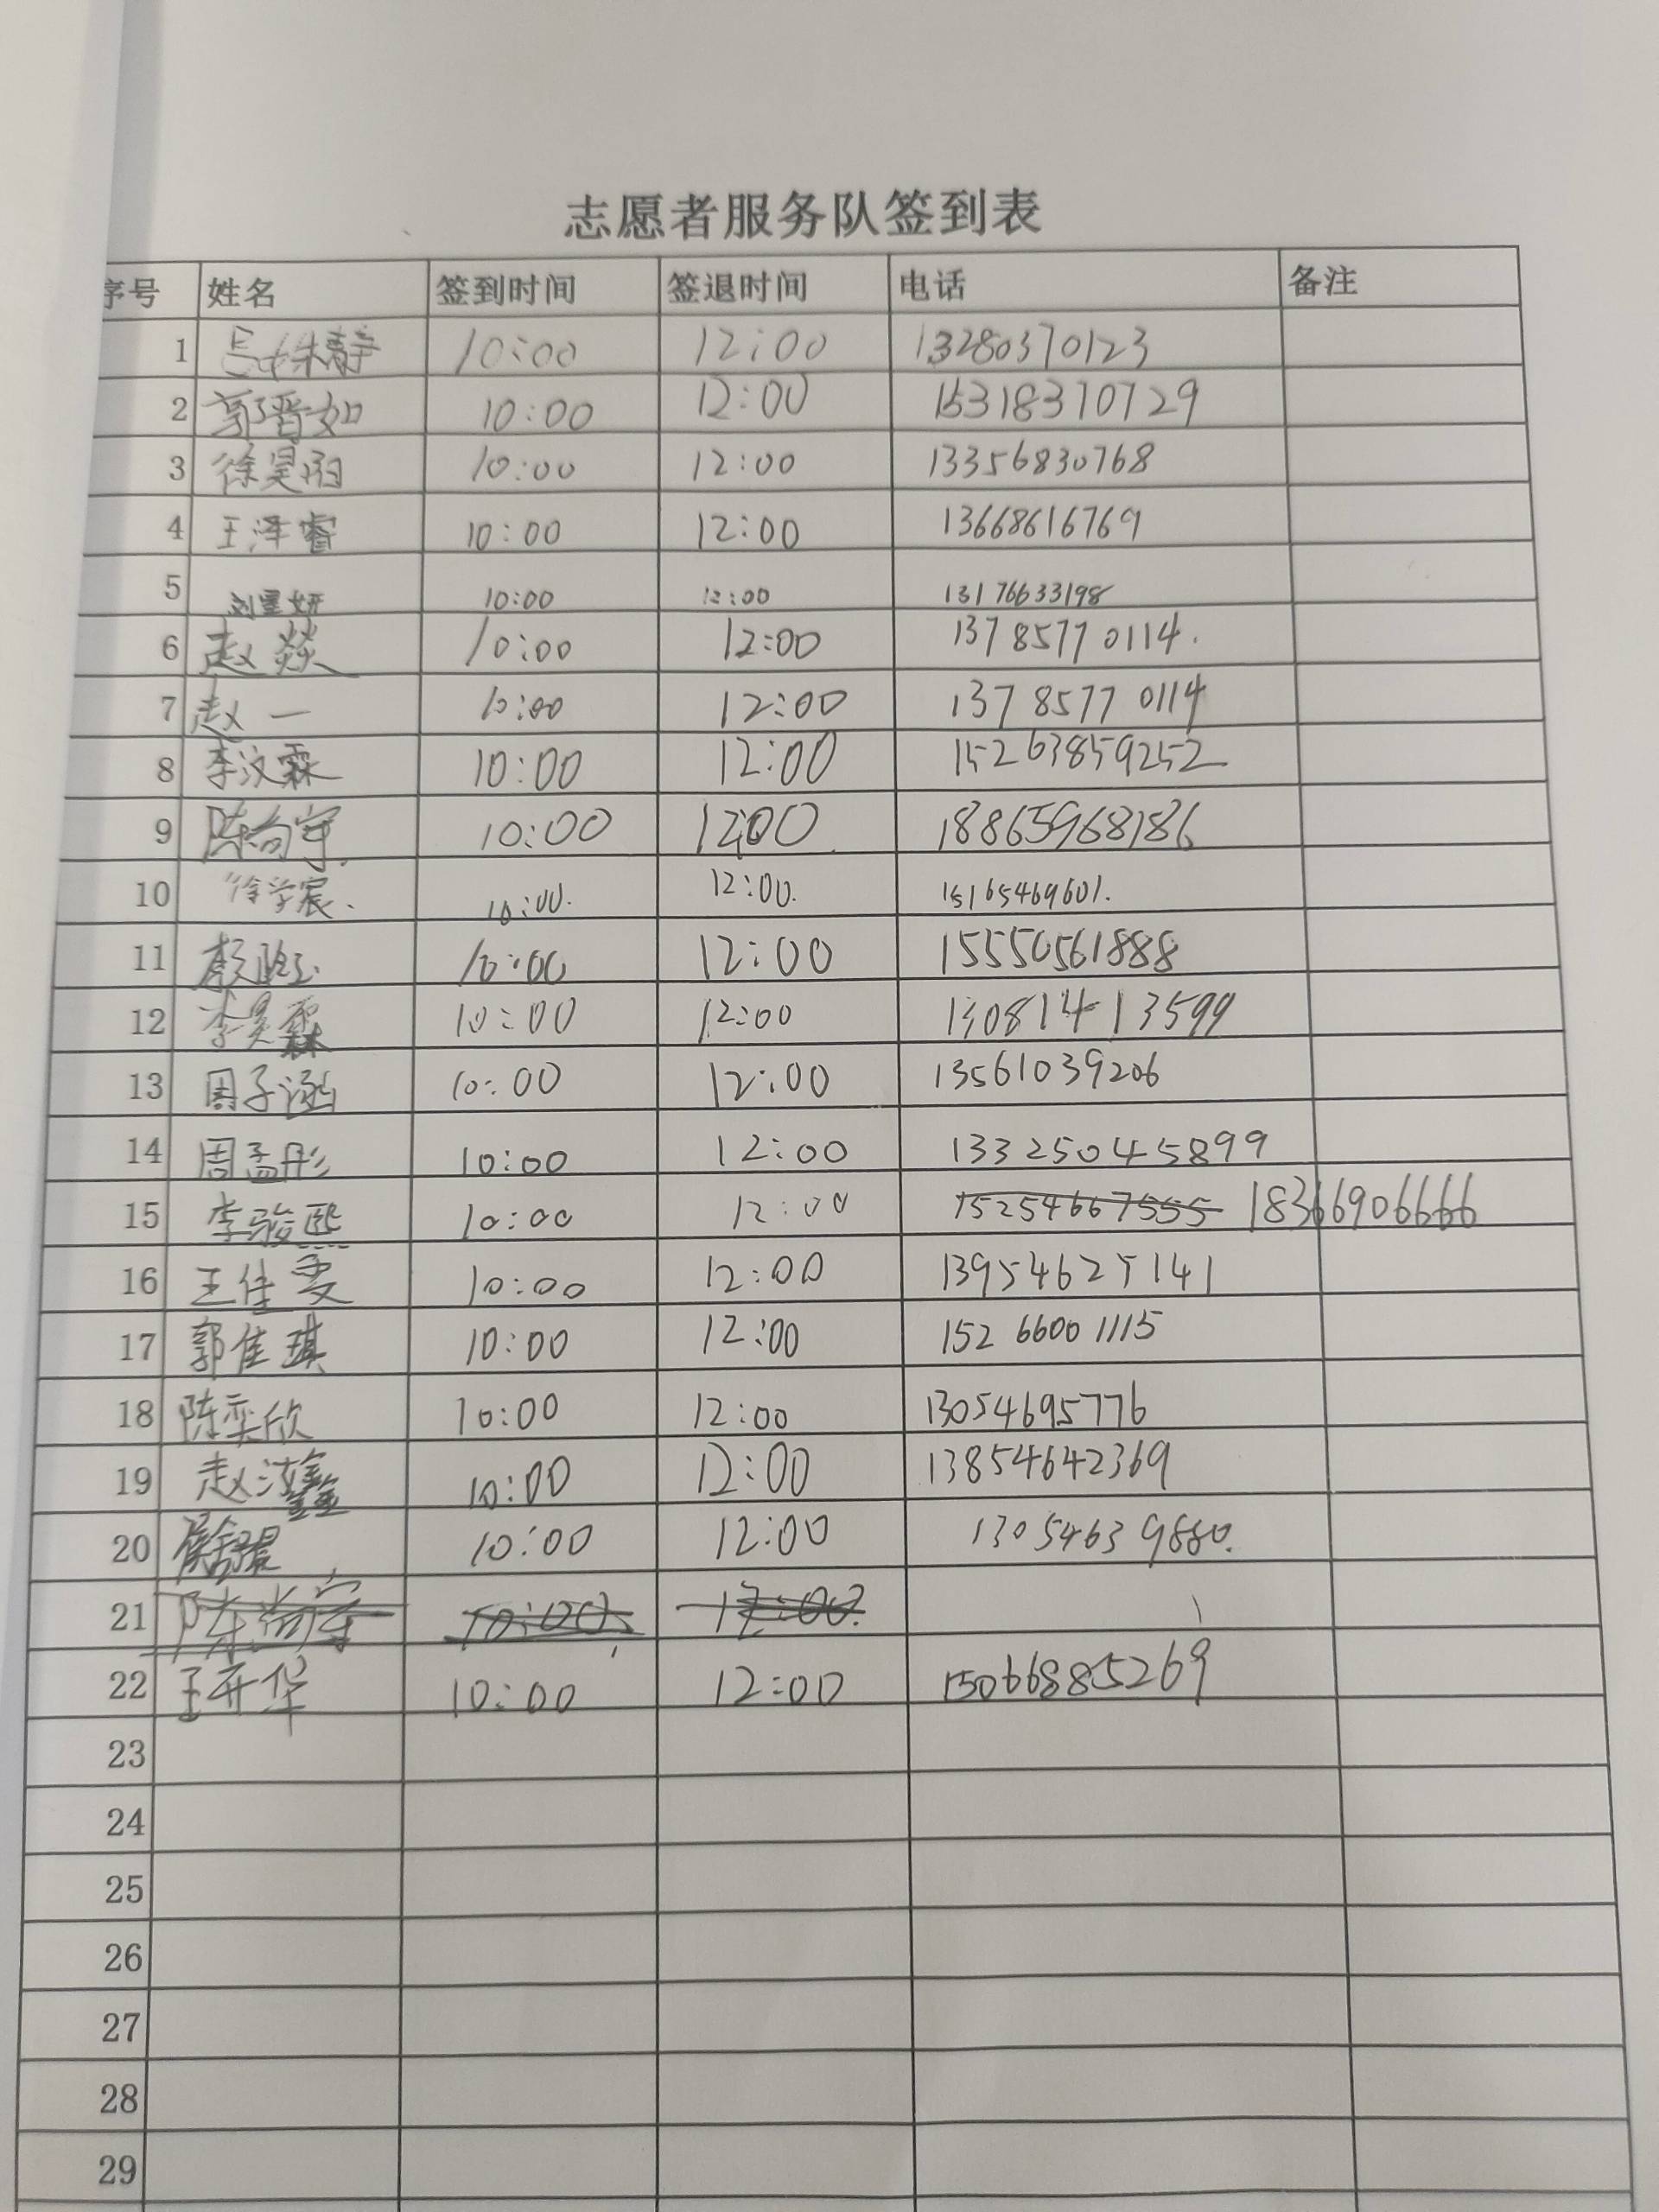 志愿者服务队签到表
序号 姓名 签到时间 签退时间 电话 备注
1 10:00 12:00 13280370123
2 郭晋如 10:00 12:00 15318370729
3 徐昊 10:00 12:00 13356830768
4 王泽睿 10:00 12:00 13668616769
5 刘昱妍 10:00 12:00 13176633198
6 赵燚 10:00 12:00 137 8577 0114.
7 赵一 10:00 12:00 137 8577 0114
8 李汶霖 10:00 12:00 15263859252
9 陈尚宇 10:00 12:00 18865968186
10 徐学宸. 10:00. 12:00. 15165469601.
11 10:00 12:00 15550561888
12 李昊霖 10:00 12:00 13081413599
13 周子涵 10:00 12:00 13561039206
14 周孟彤 10:00 12:00 13325045899
15 李骏熙 10:00 12:00 15254667555 18366906666
16 王佳雯 10:00 12:00 13954625141
17 郭佳琪 10:00 12:00 152 6600 1115
18 陈奕欣 10:00 12:00 13054695776
19 赵鑫 10:00 12:00 13854642369
20 10:00 12:00 13054639880.
21 陈尚宇 10:00 12:00
22 王开华 10:00 12:00 15066885269
23
24
25
26
27
28
29